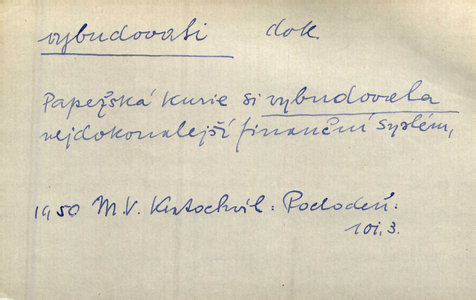 vybudovati dok.
Papežská kurie si vybudovala
nejdokonalejší finanční systém,
1950 M.V. Kratochvíl: Pochodeň.
101,3.